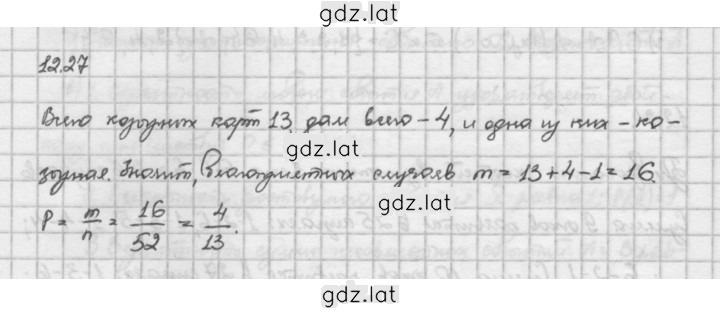 gdz.lat
12.27
Всего козырных карт 13, дам всего - 4, и одна из них - ко-
gdz.lat
зырная. Значит, благоприятных случаев m = 13 + 4 - 1 = 16.
P = m/n = 16/52 = 4/13.
gdz.lat